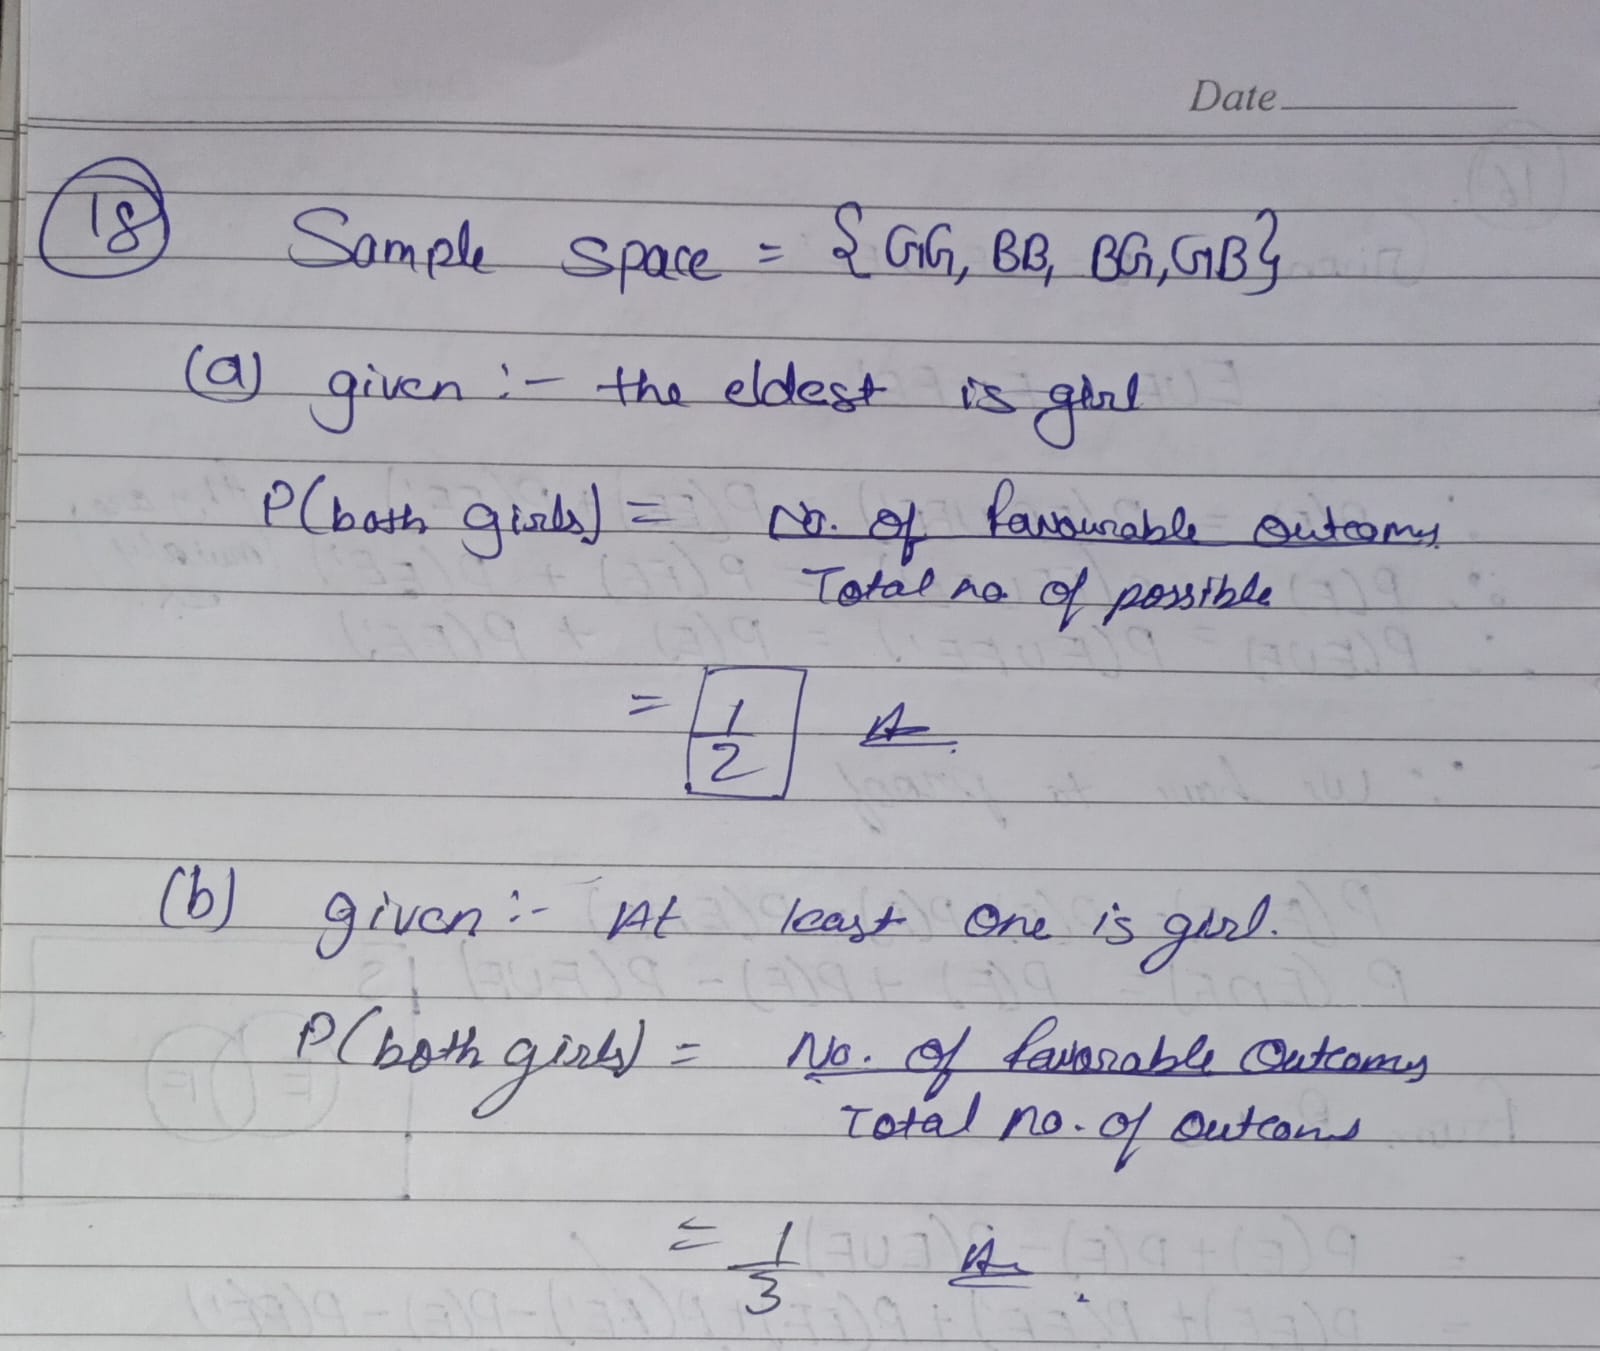 Date
18 Sample space = {GG, BB, BG, GB}
(a) given :- the eldest is girl
P(both girls) = No. of favourable outcomes
Total no. of possible
= 1/2
(b) given :- At least one is girl.
P(both girls) = No. of favorable Outcomes
Total no. of outcoms
= 1/3